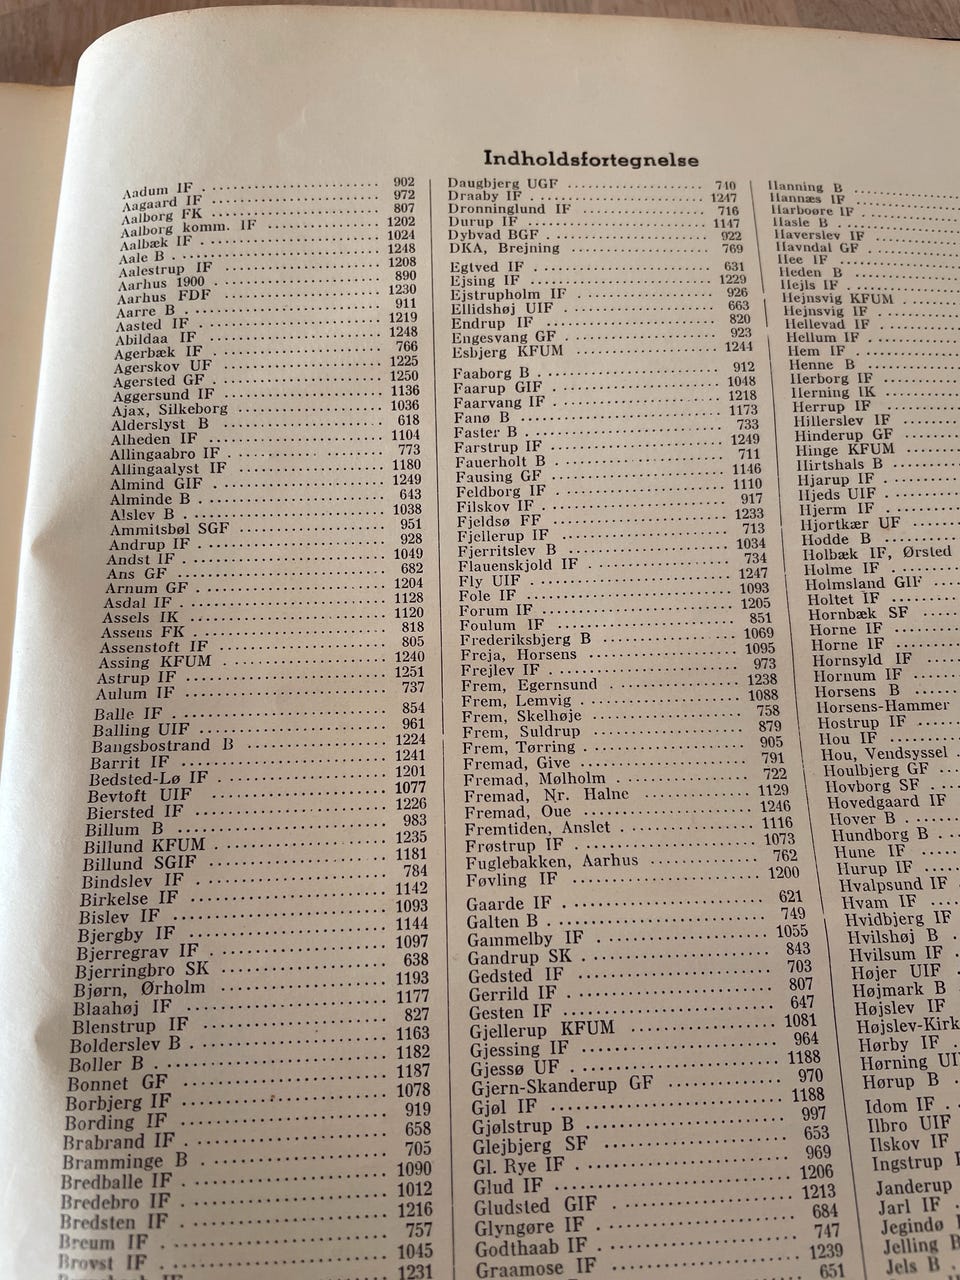 Indholdsfortegnelse
Aadum IF 902
Aagaard IF 972
Aalborg FK 807
Aalborg komm. IF 1202
Aalbæk IF 1024
Aale B 1248
Aalestrup IF 1208
Aarhus 1900 890
Aarhus FDF 1230
Aarre B 911
Aasted IF 1219
Abildaa IF 1248
Agerbæk IF 766
Agerskov UF 1225
Agersted GF 1250
Aggersund IF 1136
Ajax, Silkeborg 1036
Alderslyst B 618
Alheden IF 1104
Allingaabro IF 773
Allingaalyst IF 1180
Almind GIF 1249
Alminde B 643
Alslev B 1038
Ammitsbøl SGF 951
Andrup IF 928
Andst IF 1049
Ans GF 682
Arnum GF 1204
Asdal IF 1128
Assels IK 1120
Assens FK 818
Assenstoft IF 805
Assing KFUM 1240
Astrup IF 1251
Aulum IF 737
Balle IF 854
Balling UIF 961
Bangsbostrand B 1224
Barrit IF 1241
Bedsted-Lø IF 1201
Bevtoft UIF 1077
Biersted IF 1226
Billum B 983
Billund KFUM 1235
Billund SGIF 1181
Bindslev IF 784
Birkelse IF 1142
Bislev IF 1093
Bjergby IF 1144
Bjerregrav IF 1097
Bjerringbro SK 638
Bjørn, Ørholm 1193
Blaahøj IF 1177
Blenstrup IF 827
Bolderslev B 1163
Boller B 1182
Bonnet GF 1187
Borbjerg IF 1078
Bording IF 919
Brabrand IF 658
Bramminge B 705
Bredballe IF 1090
Bredebro IF 1012
Bredsten IF 1216
Breum IF 757
Brovst IF 1045
1231
Daugbjerg UGF 740
Draaby IF 1247
Dronninglund IF 716
Durup IF 1147
Dybvad BGF 922
DKA, Brejning 769
Egtved IF 631
Ejsing IF 1229
Ejstrupholm IF 926
Ellidshøj UIF 663
Endrup IF 820
Engesvang GF 923
Esbjerg KFUM 1244
Faaborg B 912
Faarup GIF 1048
Faarvang IF 1218
Fanø B 1173
Faster B 733
Farstrup IF 1249
Fauerholt B 711
Fausing GF 1146
Feldborg IF 1110
Filskov IF 917
Fjeldsø FF 1233
Fjellerup IF 713
Fjerritslev B 1034
Flauenskjold IF 734
Fly UIF 1247
Fole IF 1093
Forum IF 1205
Foulum IF 851
Frederiksbjerg B 1069
Freja, Horsens 1095
Frejlev IF 973
Frem, Egernsund 1238
Frem, Lemvig 1088
Frem, Skelhøje 758
Frem, Suldrup 879
Frem, Tørring 905
Fremad, Give 791
Fremad, Mølholm 722
Fremad, Nr. Halne 1129
Fremad, Oue 1246
Fremtiden, Anslet 1116
Frøstrup IF 1073
Fuglebakken, Aarhus 762
Føvling IF 1200
Gaarde IF 621
Galten B 749
Gammelby IF 1055
Gandrup SK 843
Gedsted IF 703
Gerrild IF 807
Gesten IF 647
Gjellerup KFUM 1081
Gjessing IF 964
Gjessø UF 1188
Gjern-Skanderup GF 970
Gjøl IF 1188
Gjølstrup B 997
Glejbjerg SF 653
Gl. Rye IF 969
Glud IF 1206
Gludsted GIF 1213
Glyngøre IF 684
Godthaab IF 747
Graamose IF 1239
651
Hanning B
Hannæs IF
Harboøre IF
Hasle B
Haverslev IF
Havndal GF
Hee IF
Heden B
Hejls IF
Hejnsvig KFUM
Hejnsvig IF
Hellevad IF
Hellum IF
Hem IF
Henne B
Herborg IF
Herning IK
Herrup IF
Hillerslev IF
Hinderup GF
Hinge KFUM
Hirtshals B
Hjarup IF
Hjeds UIF
Hjerm IF
Hjortkær UF
Hodde B
Holbæk IF, Ørsted
Holme IF
Holmsland GIF
Holtet IF
Hornbæk SF
Horne IF
Horne IF
Hornsyld IF
Hornum IF
Horsens B
Horsens-Hammer
Hostrup IF
Hou IF
Hou, Vendsyssel
Houlbjerg GF
Hovborg SF
Hovedgaard IF
Hover B
Hundborg B
Hune IF
Hurup IF
Hvalpsund IF
Hvam IF
Hvidbjerg IF
Hvilshøj B
Hvilsum IF
Højer UIF
Højmark B
Højslev IF
Højslev-Kirk
Hørby IF
Hørning UI
Hørup B
Idom IF
Ilbro UIF
Ilskov IF
Ingstrup
Janderup
Jarl IF
Jegindø
Jelling B
Jels B